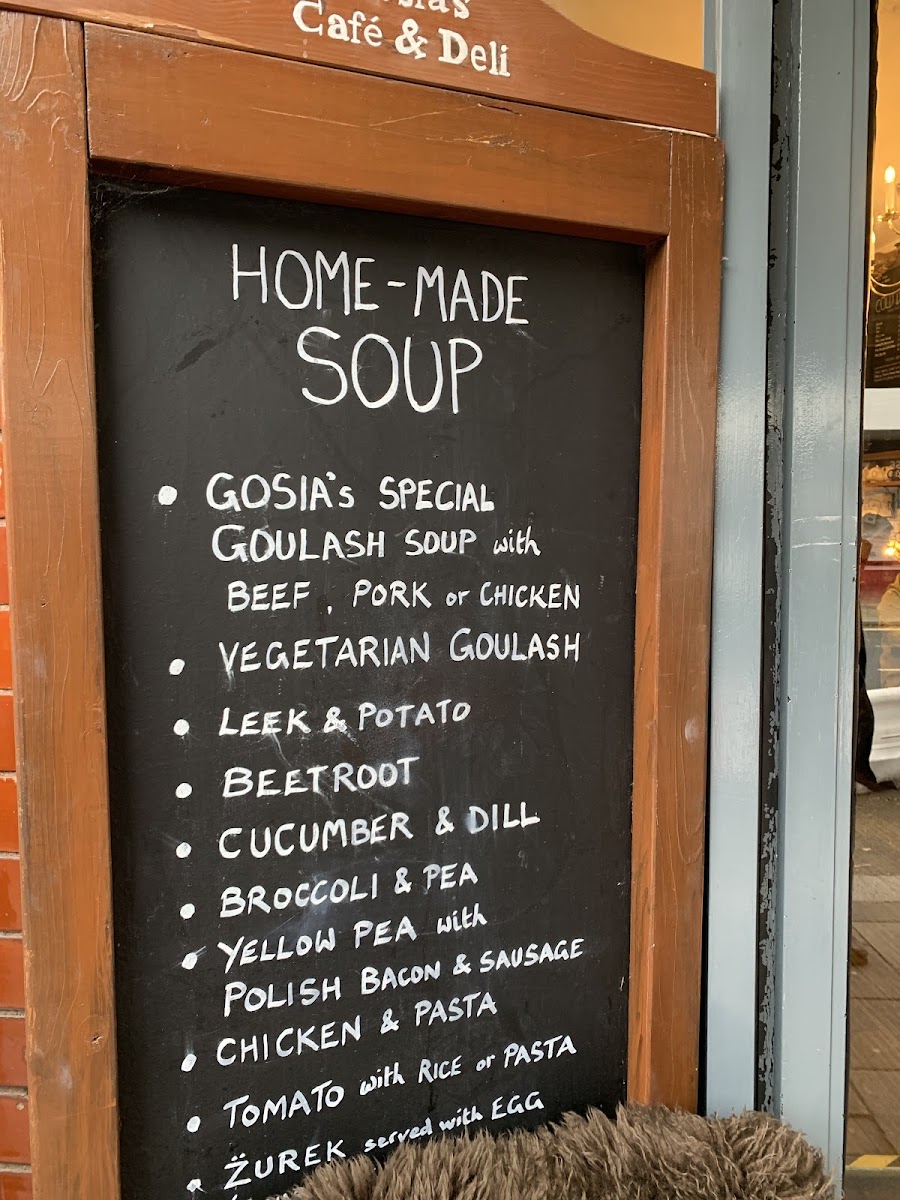 Café & Deli
HOME-MADE
SOUP
• GOSIA's SPECIAL
GOULASH SOUP with
BEEF, PORK or CHICKEN
• VEGETARIAN GOULASH
• LEEK & POTATO
• BEETROOT
• CUCUMBER & DILL
• BROCCOLI & PEA
• YELLOW PEA with
POLISH BACON & SAUSAGE
• CHICKEN & PASTA
• TOMATO with RICE or PASTA
• ŻUREK served with EGG